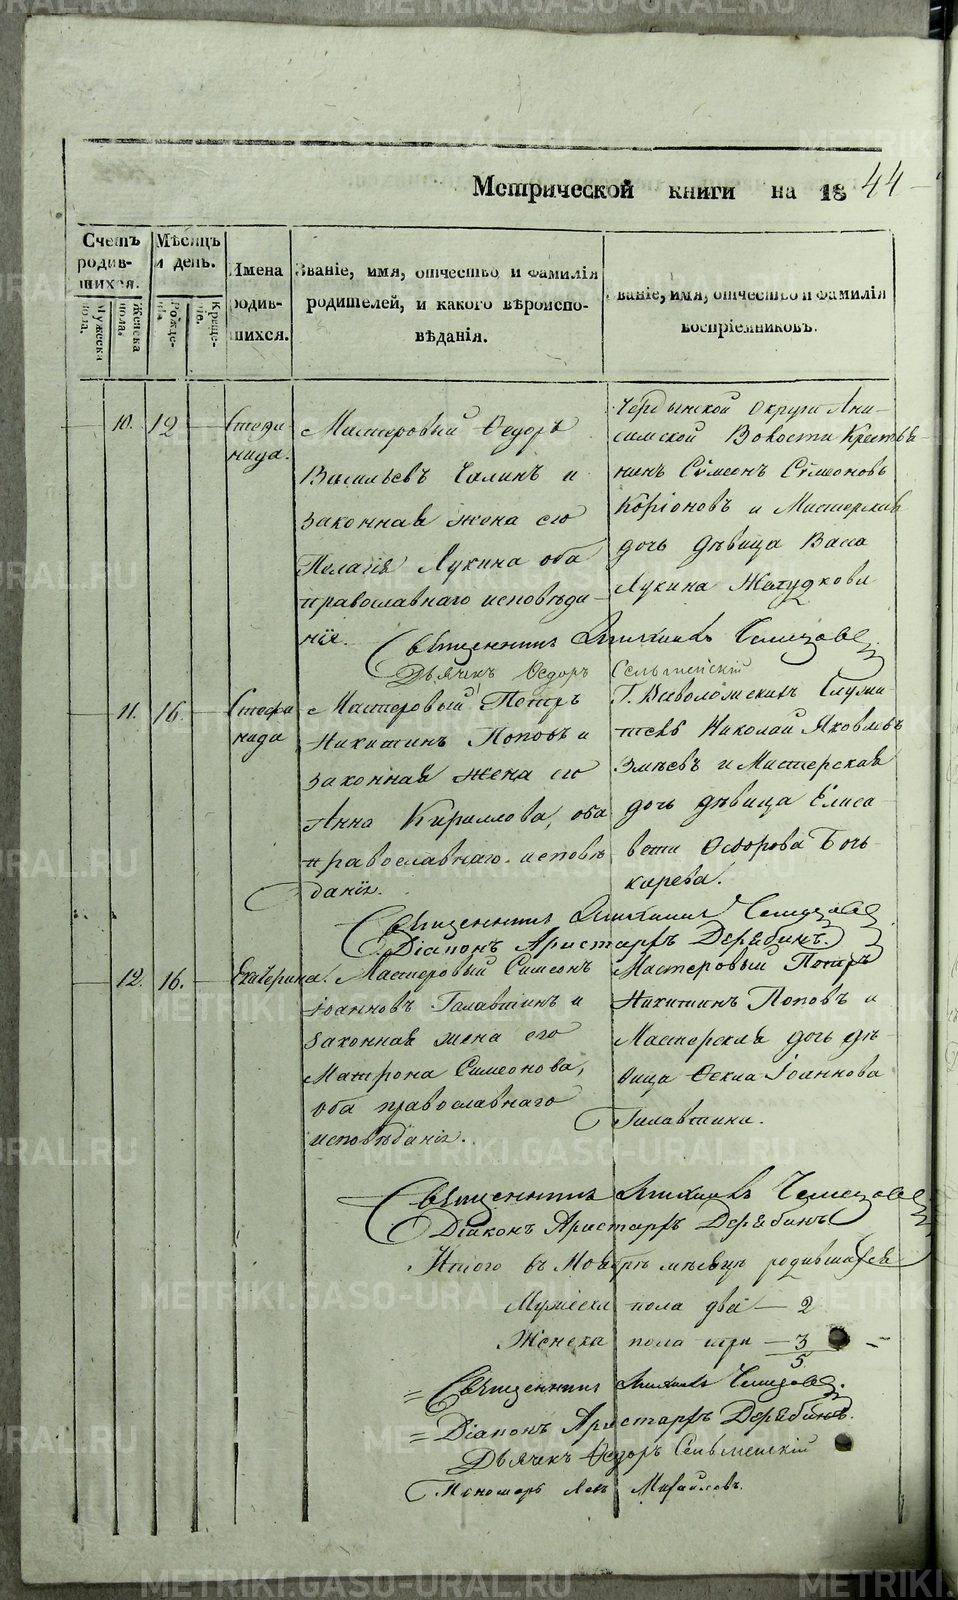 Метрической книги на 1844
Счетъ родившихся.
Мужеска пола.
Женска пола.
Мѣсяцъ и день.
Рожденія.
Крещенія.
Имена родившихся.
Званіе, имя, отчество и фамилія родителей, и какого вѣроисповѣданія.
Званіе, имя, отчество и фамилія воспріемниковъ.
10. 12
Мастеровый Ѳедоръ
Васильевъ Чалинъ и
законная жена его
Пелагія Лукина оба
православнаго исповѣда-
нія.
Чердынской Округи Ани-
симской Волости Крестья-
нинъ Сѵмеонъ Сѵмеоновъ
и Мастерская
дочь дѣвица Васса
Лукина
Священникъ
Дьячекъ Ѳедоръ Сельменскій
11. 16.
Стефа
нида
Мастеровый Петръ
Никитинъ Поповъ и
законная жена его
Анна Кирилова, оба
православнаго исповѣ
данія.
Г. Всеволожскихъ Служи
тель Николай Яковлевъ
Змѣевъ и Мастерская
дочь дѣвица Елиса
вета Ѳедорова Боч-
карева.
Священникъ
Діаконъ Аристархъ Дерябинъ.
12. 16.
Екатерина.
Мастеровый Симеонъ
Іоанновъ Галавтинъ и
законная жена его
Матрона Симеонова,
оба православнаго
исповѣданія.
Мастеровый Петръ
Никитинъ Поповъ и
Мастерская дочь дѣ-
вица Іоаннова
Галавтина.
Священникъ
Діаконъ Аристархъ Дерябинъ
Итого въ Ноябрѣ мѣсяцѣ родившихся
Мужеска пола два — 2
Женска пола три — 3
5
= Священникъ
= Діаконъ Аристархъ Дерябинъ.
Дьячекъ Ѳедоръ Сельменскій
Пономарь Михайловъ.
METRIKI.GASO-URAL.RU